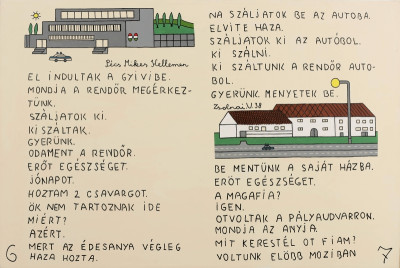 Pécs Mikes Kelemen
EL INDULTAK A GYIVIBE.
MONDJA A RENDŐR MEGÉRKEZ-
TÜNK.
SZÁLJATOK KI.
KI SZÁLTAK.
GYERÜNK.
ODAMENT A RENDŐR.
ERŐT EGÉSZSÉGET.
JÓNAPOT.
HOZTAM 2 CSAVARGOT.
ŐK NEM TARTOZNAK IDE
MIÉRT?
AZÉRT.
MERT AZ ÉDESANYA VÉGLEG
HAZA HOZTA.
6
NA SZÁLJATOK BE AZ AUTÓBA.
ELVITE HAZA.
SZÁLJATOK KI AZ AUTÓBOL.
KI SZÁLNI.
KI SZÁLTUNK A RENDŐR AUTO-
BOL.
GYERÜNK MENYETEK BE.
Zsolnai U. 38
BE MENTÜNK A SAJÁT HÁZBA.
ERŐT EGÉSZSÉGET.
A MAGAFIA?
IGEN.
OTVOLTAK A PÁLYAUDVARRON.
MONDJA AZ ANYJA.
MIT KERESTÉL OT FIAM?
VOLTUNK ELŐBB MOZIBAN
7